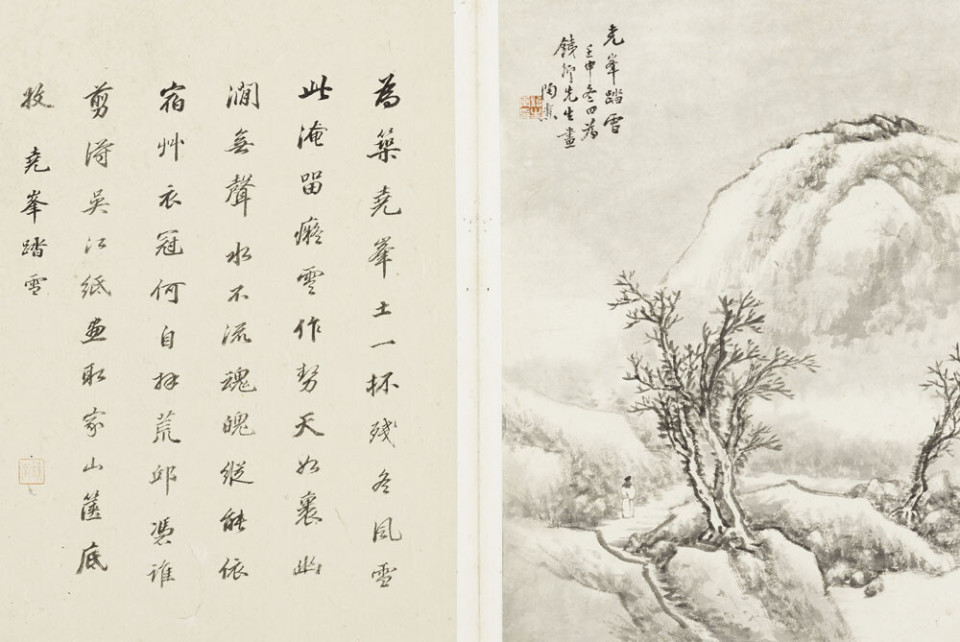 堯峯踏雪
壬申冬日為
先生畫
陶
為築堯峯土一抔殘冬風雪
此淹畱癡雲作勢天如裹幽
澗無聲水不流魂魄縱能依
宿艸衣冠何自拜荒邱憑誰
剪得吳江紙畫取家山篋底
收 堯峯踏雪